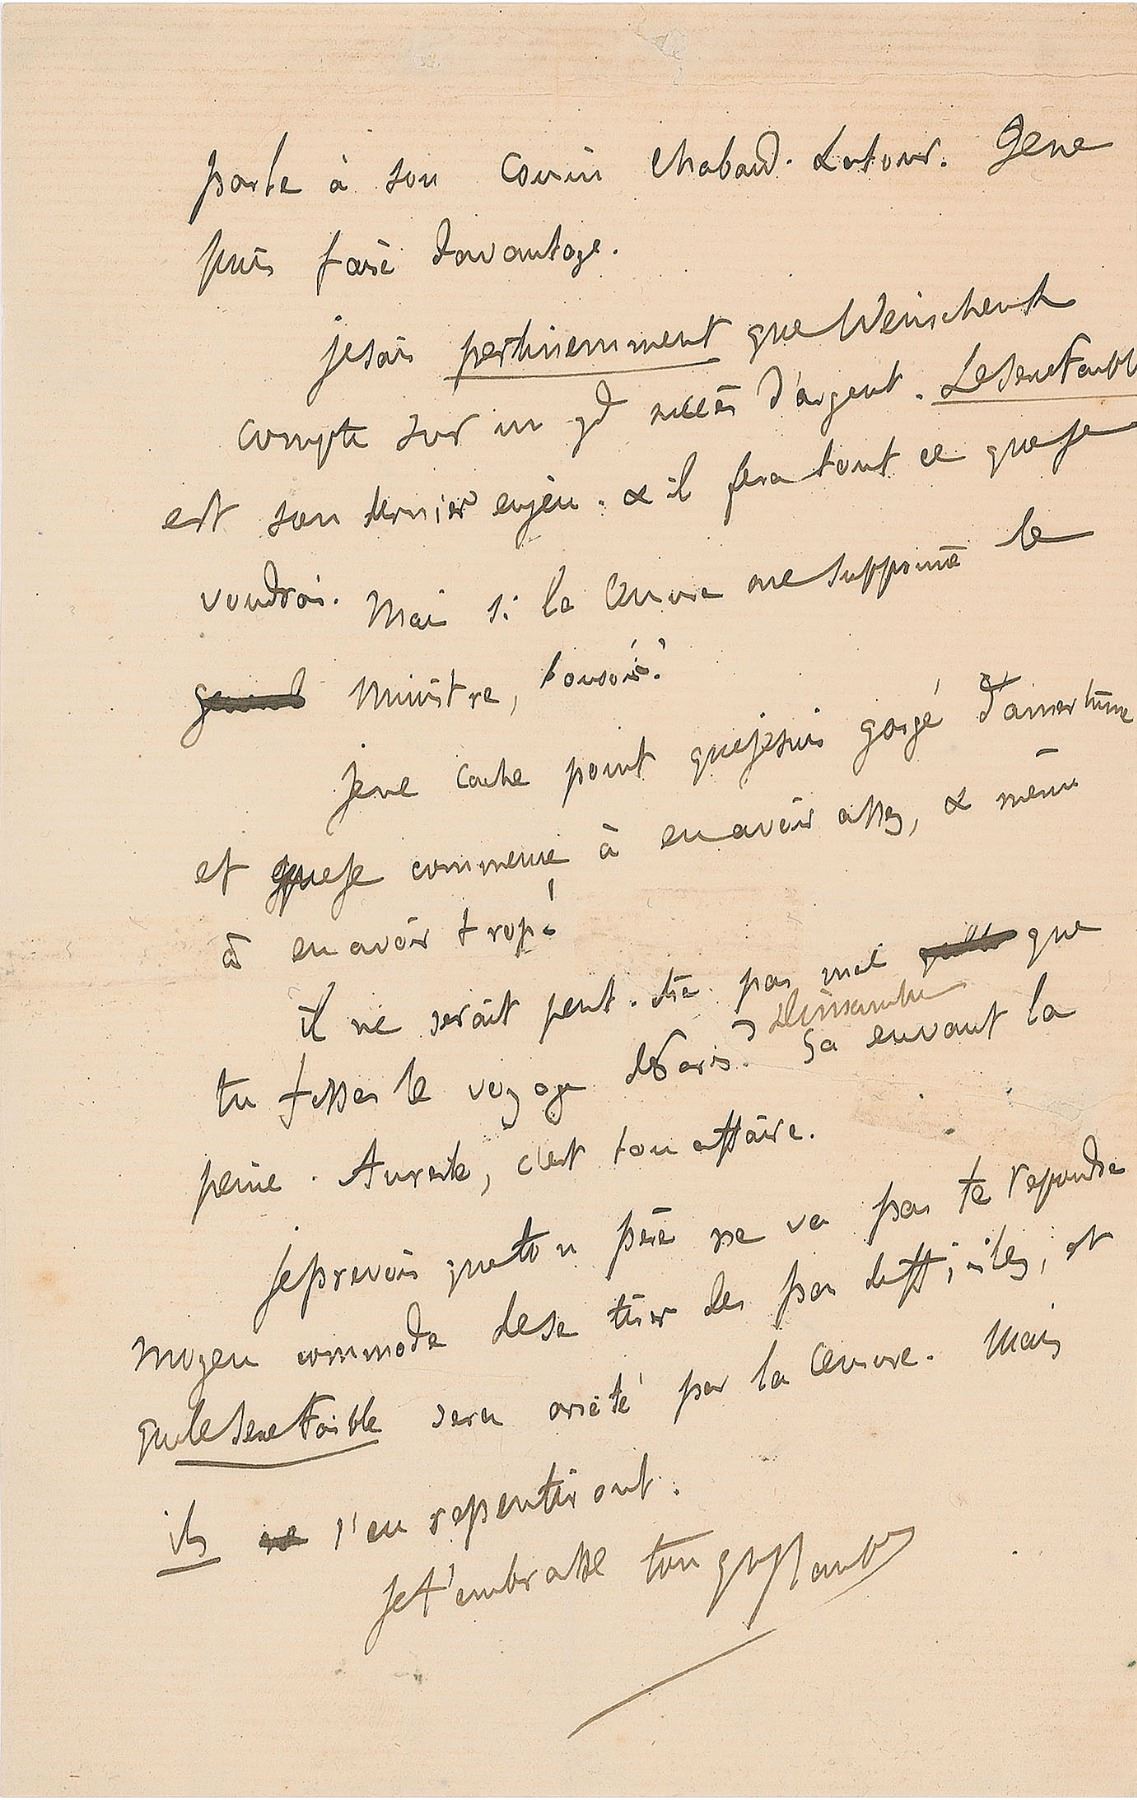 parle à son cousin Chabaud-Latour. Je ne
puis faire davantage.
je sais pertinemment que Weinschenk
compte sur un gd succès d'argent. Le Sexe Faible
est son dernier enjeu. & il fera tout ce que je
voudrai. Mais si la Censure me supprime le
general Ministre, bonsoir!
je ne cache point que je suis gorgé d'amertume
et que je commence à en avoir assez, & même
à en avoir trop!
il ne serait peut-être pas mal que
tu fisses le voyage de Paris?
Dimanche
Ça en vaut la
peine. Au reste, c'est ton affaire.
Je prevois que ton père ne va pas te repondre
moyen commode de se tirer des pas difficiles, et
que le Sexe Faible sera arrêté par la Censure. Mais
ils ne s'en repentiront.
Je t'embrasse ton